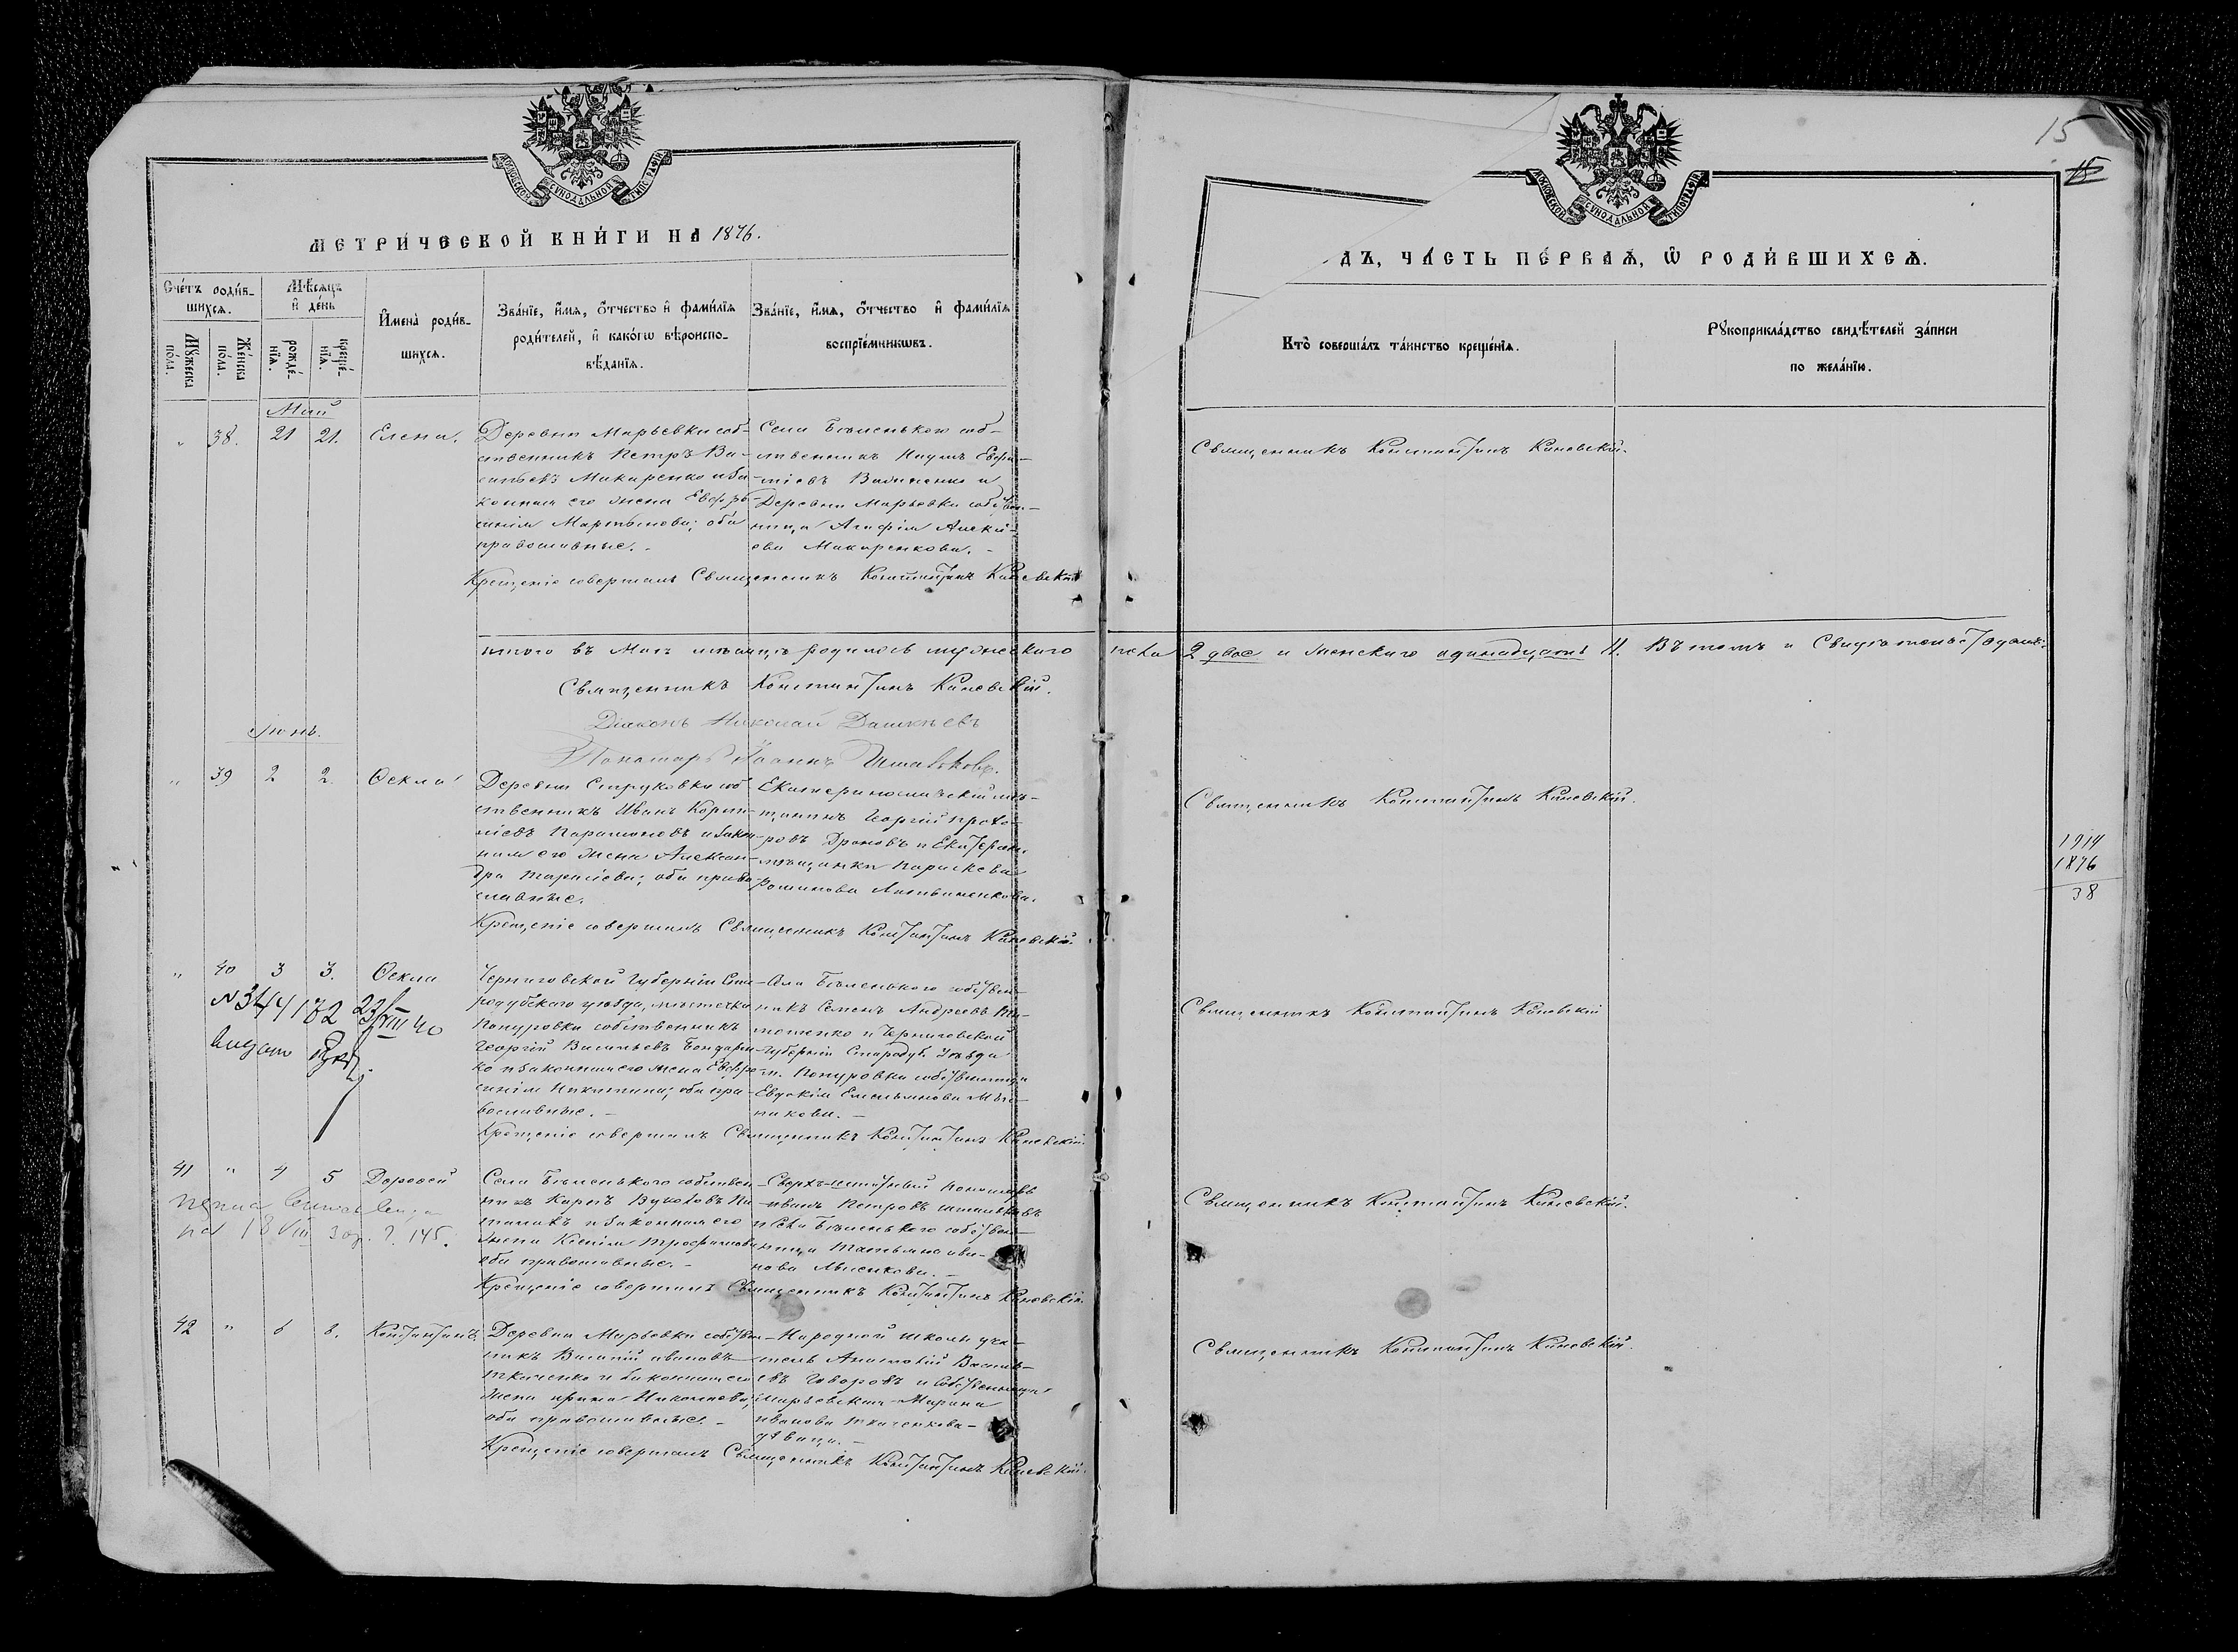 МОСКОВСКОЙ СѴНОДАЛЬНОЙ ТИПОГРАФІИ
МЕТРИ́ЧЕСКОЙ КНИ́ГИ НА 1876.
Сче́тъ роди́в-
шихсѧ.
Мꙋ́жеска
по́ла.
Же́нска
по́ла.
Мѣ́сѧцъ
и҆ де́нь
рожде́-
нїѧ.
креще́-
нїѧ.
И҆мена̀ роди́в-
шихсѧ.
Зва́нїе, и҆́мѧ, ѻ҆́тчество и҆ фами́лїѧ
роди́телей, и҆ како́гѡ вѣроиспо-
вѣ́данїѧ.
Зва́нїе, и҆́мѧ, ѻ҆́тчество и҆ фами́лїѧ
воспрїе́мникѡвъ.
Май
" 38. 21 21. Елена.
Деревни Марьевки соб-
ственникъ Петръ Ва-
сильевъ Макаренко и за-
конная его жена Евфро-
синія Мартынова; оба
православные. -
Села Бѣленького соб-
ственникъ Наумъ
и
Деревни Марьевки собствен-
ница Агафія Алексѣ-
ева Макаренкова. -
Крещеніе совершалъ Священникъ Константинъ Каневскій
итого въ Маѣ мѣсяцѣ родилось мужескаго
Священникъ Константинъ Каневскій.
Діаконъ Николай Дашкѣевъ
Пономарь Іоаннъ
Іюнь.
" 39 2 2. Ѳекла
Деревни Струковки соб-
ственникъ Иванъ Корни-
ліевъ Парамоновъ и закон-
ная его жена Алексан-
дра Тарасіева; оба право-
славные.
Екатеринославскій мѣ-
щанинъ Георгій Прохо-
ровъ Дроновъ и Екатерин.
мѣщанка Параскева
Фоминова Литвиненкова.
Крещеніе совершалъ Священникъ Константинъ Каневскій.
" 40 3 3. Ѳекла
N 344182 23/VIII 40
Черниговской Губерніи Ста-
родубского уѣзда, мѣстечка
Понуровки собственникъ
Георгій Васильевъ Бондарен-
ко и законная его жена Евфро-
синія Никитина; оба пра-
вославные. -
Села Бѣленького собствен-
никъ Семенъ Андреевъ
и Черниговской
Губерніи Стародуб. Уѣзда
м. Понуровки собственница
Евдокія Емельянова
Крещеніе совершалъ Священникъ Константинъ Каневскій.
41 " 4 5 Дорофей
18 VIII 145.
Села Бѣленького собствен-
никъ Карпъ
и законная его
жена Ксенія Трофимова
оба православные. -
Сверхъ-штатный Пономарь
Иванъ Петровъ
и Села Бѣленького собствен-
ница Татьяна Ива-
нова
Крещеніе совершалъ Священникъ Константинъ Каневскій.
42 " 6 6. Константинъ
Деревни Марьевки собствен-
никъ Василій Ивановъ
Ткаченко и законная его
жена Ирина Николаева;
оба православные. -
Народной школы учи-
тель Анатолій Василь-
евъ Говоровъ и собственница
Марьевская Марина
Иванова Ткаченкова -
дѣвица. -
Крещеніе совершалъ Священникъ Константинъ Каневскій.
15
15
МОСКОВСКОЙ СѴНОДАЛЬНОЙ ТИПОГРАФІИ
ДЪ, ЧА́СТЬ ПЕ́РВАѦ, Ѡ҆ РОДИ́ВШИХСѦ.
Кто̀ соверша́лъ та́инство креще́нїѧ.
Рꙋкоприкла́дство свидѣ́телей за́писи
по жела́нїю.
Священникъ Константинъ Каневскій.
пола 2 двое и женского одинадцать 11. Въ томъ и Свидѣтельствуемъ:
Священникъ Константинъ Каневскій.
1914
1876
38
Священникъ Константинъ Каневскій
Священникъ Константинъ Каневскій.
Священникъ Константинъ Каневскій.